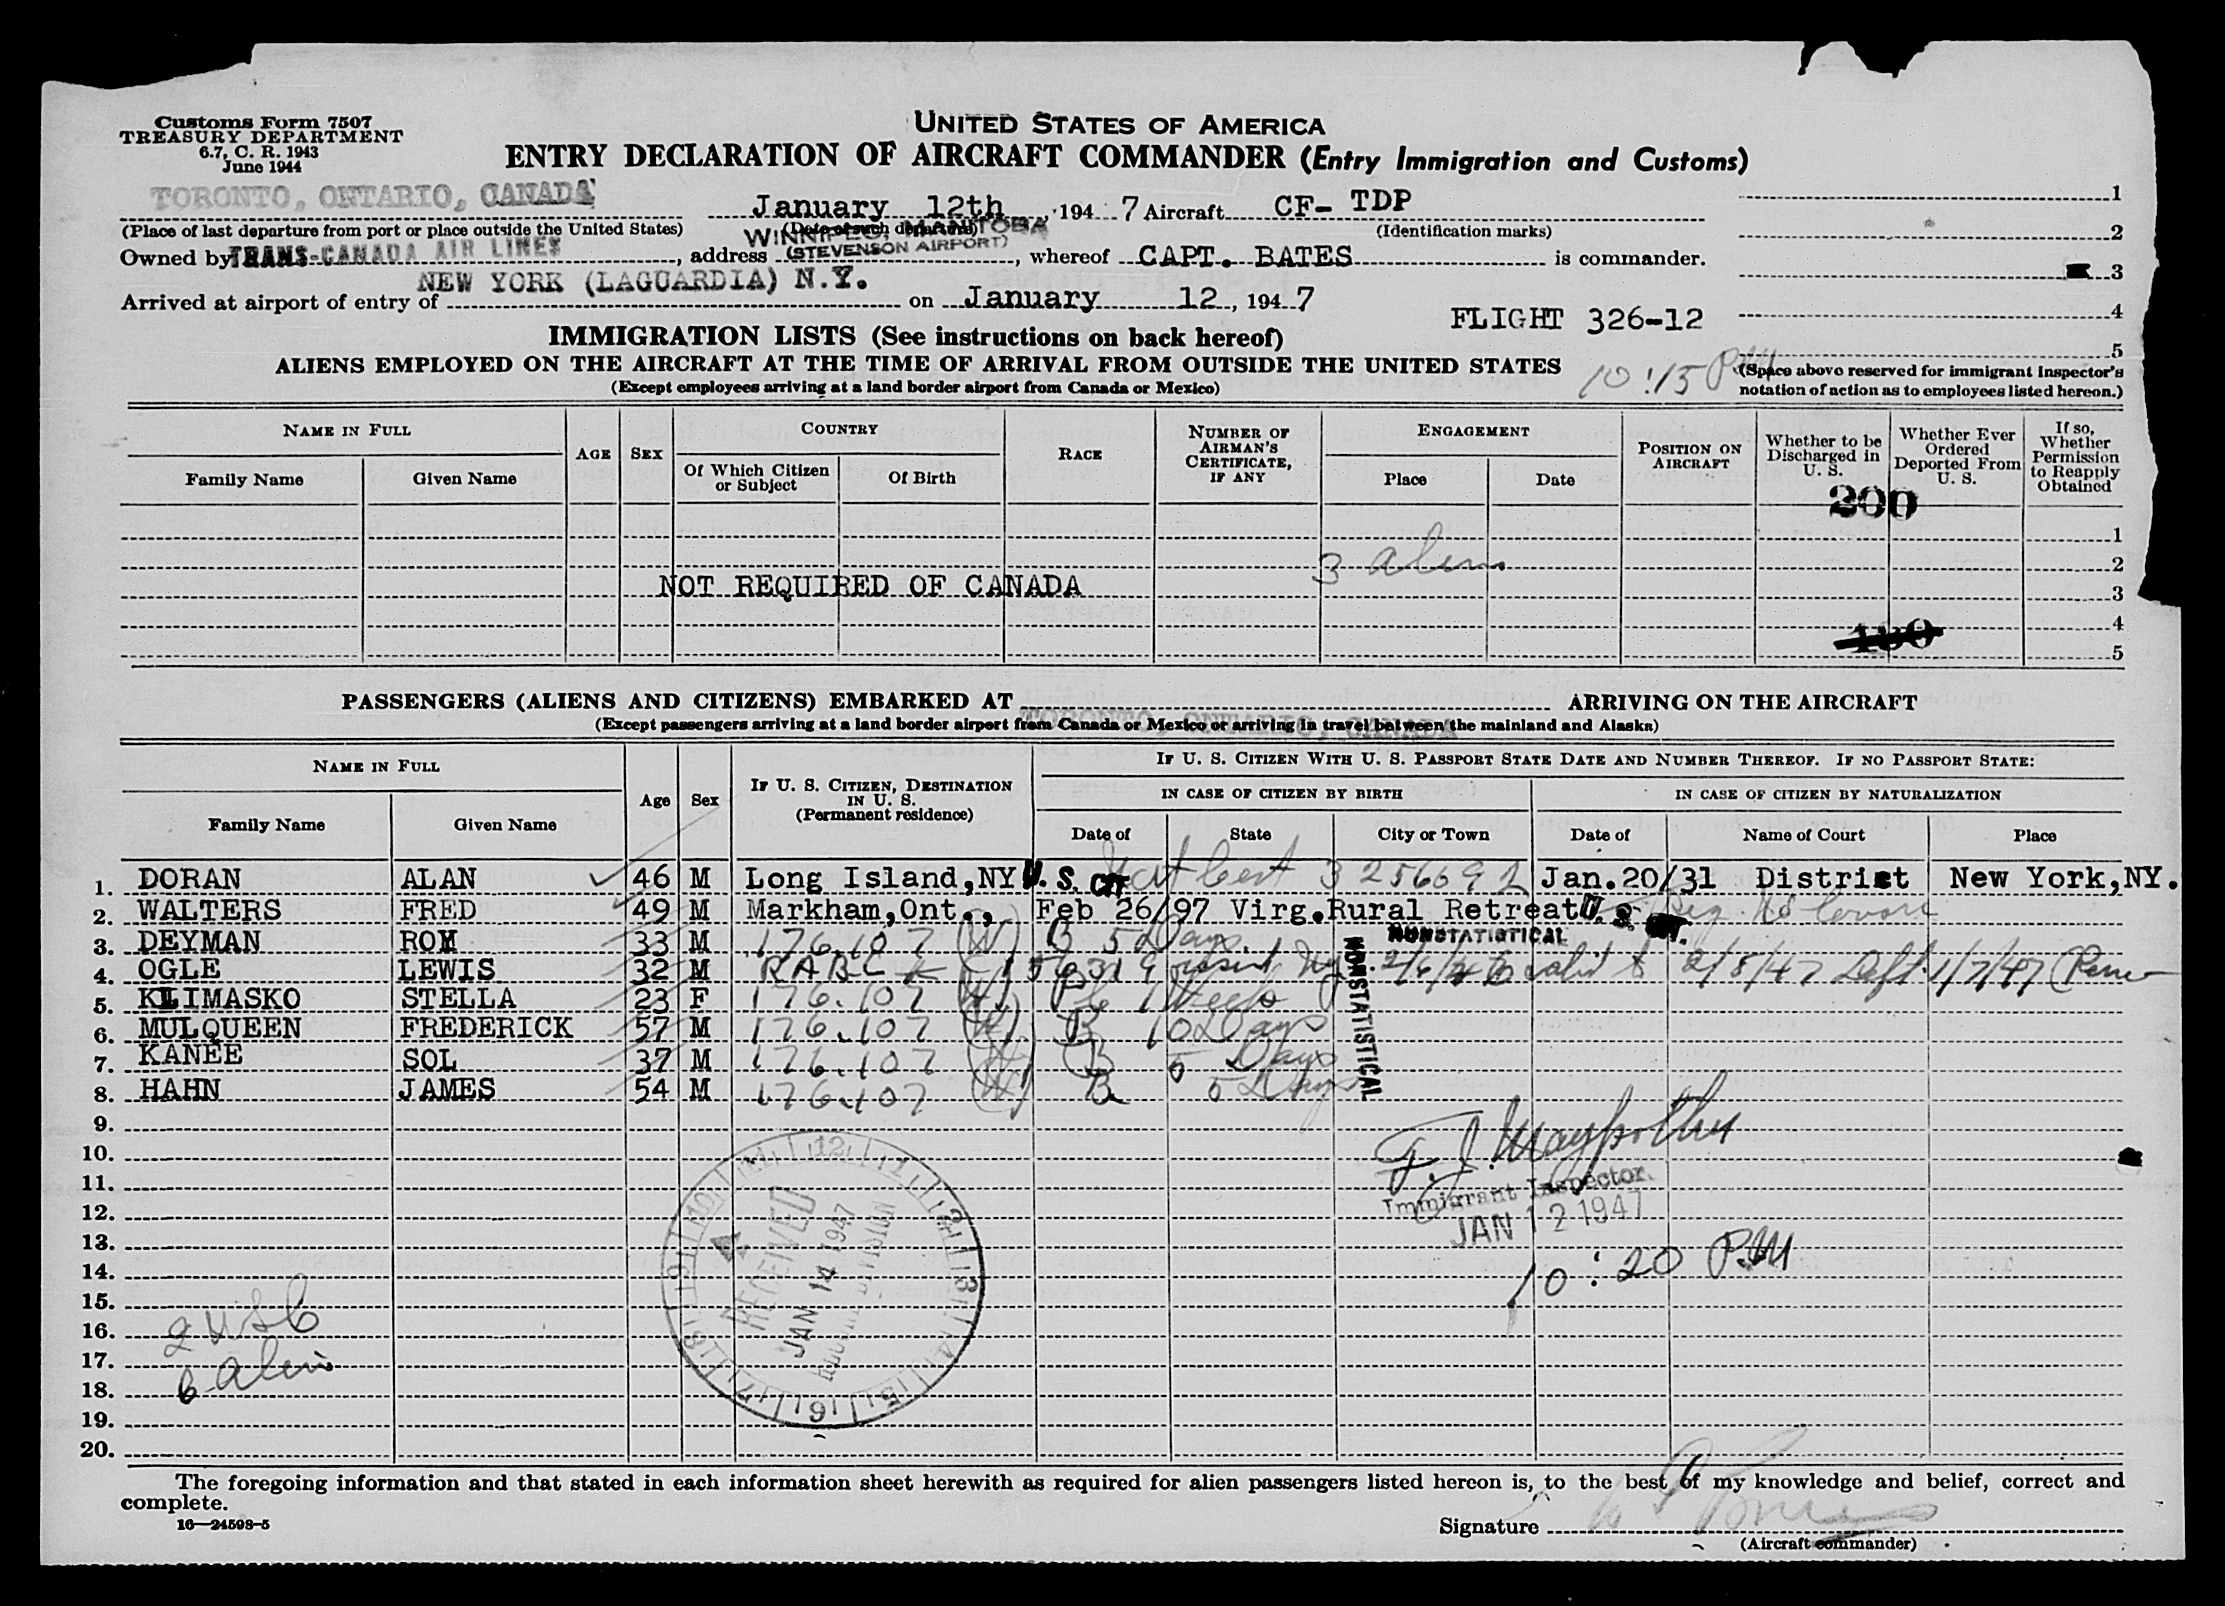 Customs Form 7507
TREASURY DEPARTMENT
6.7, C. R. 1943
June 1944
UNITED STATES OF AMERICA
ENTRY DECLARATION OF AIRCRAFT COMMANDER (Entry Immigration and Customs)
TORONTO, ONTARIO, CANADA January 12th, 1947 Aircraft CF- TDP
(Place of last departure from port or place outside the United States) (Date of such departure) (Identification marks)
WINNIPEG, MANITOBA
(STEVENSON AIRPORT)
Owned by TRANS-CANADA AIR LINES, address , whereof CAPT. BATES is commander.
NEW YORK (LAGUARDIA) N.Y.
Arrived at airport of entry of on January 12, 1947
FLIGHT 326-12
1
2
3
4
5
IMMIGRATION LISTS (See instructions on back hereof)
ALIENS EMPLOYED ON THE AIRCRAFT AT THE TIME OF ARRIVAL FROM OUTSIDE THE UNITED STATES
(Except employees arriving at a land border airport from Canada or Mexico)
10:15 PM
(Space above reserved for immigrant inspector's
notation of action as to employees listed hereon.)
NAME IN FULL
Family Name Given Name
AGE SEX
COUNTRY
Of Which Citizen or Subject Of Birth
RACE
NUMBER OF AIRMAN'S CERTIFICATE, IF ANY
ENGAGEMENT
Place Date
POSITION ON AIRCRAFT
Whether to be Discharged in U. S.
Whether Ever Ordered Deported From U. S.
If so, Whether Permission to Reapply Obtained
200
1
2
3 alien
NOT REQUIRED OF CANADA
3
4
5
PASSENGERS (ALIENS AND CITIZENS) EMBARKED AT ARRIVING ON THE AIRCRAFT
TORONTO, ONTARIO, CANADA
(Except passengers arriving at a land border airport from Canada or Mexico or arriving in travel between the mainland and Alaska)
NAME IN FULL
Family Name Given Name
Age Sex
IF U. S. CITIZEN, DESTINATION IN U. S.
(Permanent residence)
IF U. S. CITIZEN WITH U. S. PASSPORT STATE DATE AND NUMBER THEREOF. IF NO PASSPORT STATE:
IN CASE OF CITIZEN BY BIRTH IN CASE OF CITIZEN BY NATURALIZATION
Date of State City or Town Date of Name of Court Place
1. DORAN ALAN 46 M Long Island,NY U. S. CIT. Cert 3256692 Jan.20/31 District New York,NY.
2. WALTERS FRED 49 M Markham,Ont., Feb 26/97 Virg. Rural Retreat U. S. CIT.
NONSTATISTICAL
3. DEYMAN ROY 33 M 176.107 (W) B 5 Days
4. OGLE LEWIS 32 M 2/8/47 1/7/47
5. KLIMASKO STELLA 23 F 176.107 (W)
6. MULQUEEN FREDERICK 57 M 176.107 (W) B 10 Days
7. KANEE SOL 37 M 176.107 (W) B 5 Days
8. HAHN JAMES 54 M 176.107 (W) B 5 Days
NONSTATISTICAL
9.
10.
11.
12.
13.
14.
15.
16.
17.
18.
19.
20.
Immigrant Inspector
JAN 12 1947
10:20 P.M
RECEIVED
JAN 14 1947
DIVISION
2 USC
6 alien
The foregoing information and that stated in each information sheet herewith as required for alien passengers listed hereon is, to the best of my knowledge and belief, correct and
complete.
16—24598-5
Signature
(Aircraft commander)